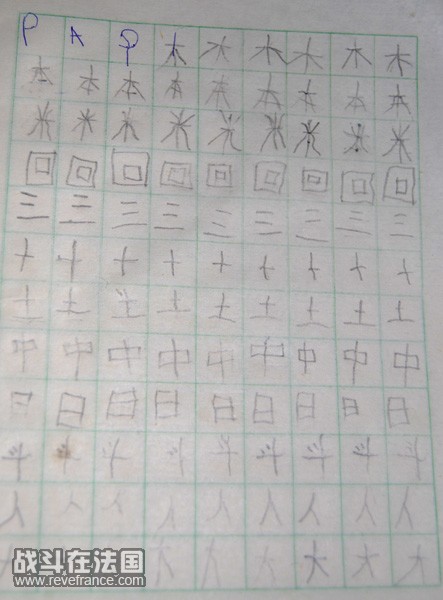 P A 木 木 木 木 木 木
本 本 本 本 本 本 本 本 本
米 米 米 米 米 米 米 米 米
回 回 回 回 回 回 回 回 回
三 三 三 三 三 三 三 三 三
十 十 十 十 十 十 十 十 十
土 土 土 土 土 土 土 土 土
中 中 中 中 中 中 中 中 中
日 日 日 日 日 日 日 日 日
斗 斗 斗 斗 斗 斗 斗 斗 斗
人 人 人 人 人 人 人 人 人
大 大 大
战斗在法国
www.revefrance.com